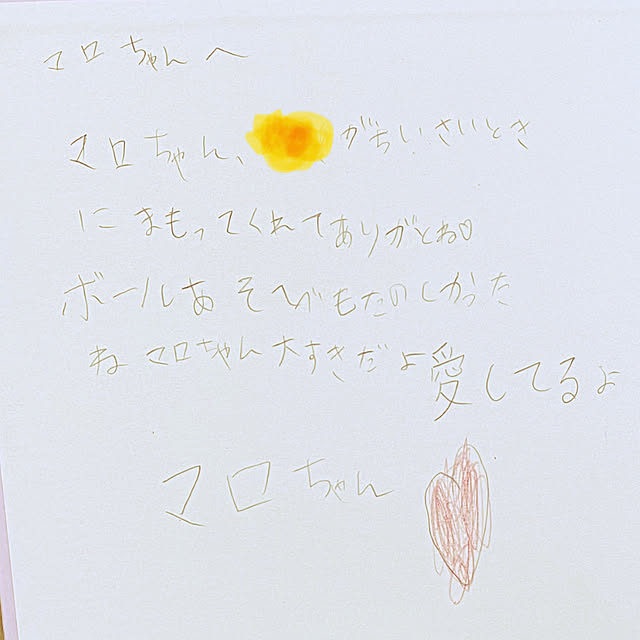 マロちゃんへ
マロちゃん、がちいさいとき
にまもってくれてありがとね♡
ボールあそびもたのしかった
ね マロちゃん大すきだよ愛してるよ
マロちゃん